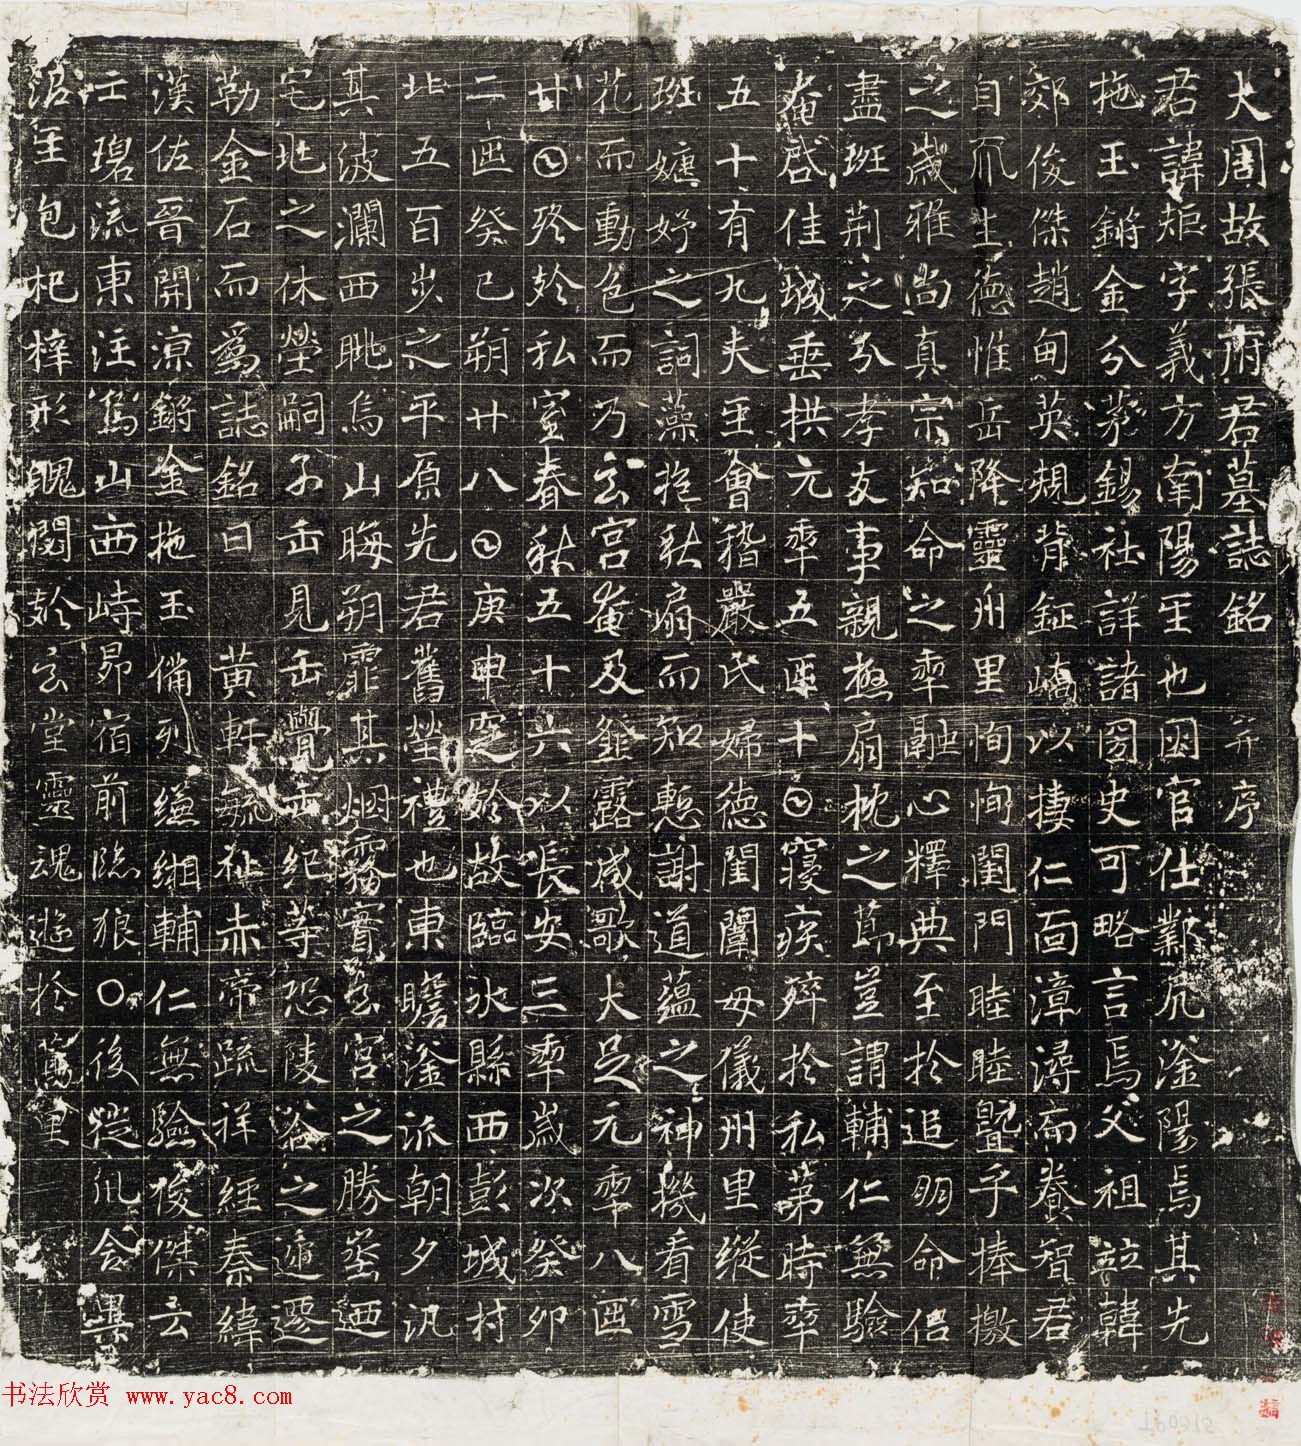 大周故張府君墓誌銘 并序
君諱矩字義方南陽𤯔也因官仕鄴凥滏陽焉其先
拖玉鏘金分茅錫社詳諸圀史可略言焉父祖竝韓
郊俊傑趙甸英規背鉦嶠以捿仁面漳潯而養智君
自爪生德惟岳降靈州里恂恂閨門睦睦暨乎捧檄
之歲雅尚真宗知命之𠡦融心釋典至於追朋命侶
盡班荆之分孝友事親極扇枕之莭豈謂輔仁無驗
奄啓佳城垂拱元𠡦五𠥱十𡆠寢疾於私第時𠡦
五十有九夫𤯔會稽嚴氏婦德閨闈母儀州里縱使
班婕妤之詞藻抱秋扇而知慙謝道蘊之神機看雪
花而動色而乃玄宮奄及薤露成歌大足元𠡦八𠥱
廿𡆠終於私室春秋五十六以長安三𠡦歲次癸卯
二𠥱癸巳朔廿八𡆠庚申窆於故臨水縣西彭城村
北五百步之平原先君舊塋禮也東瞻滏派朝夕汎
其波瀾西眺烏山晦朔霏其烟霧實玄宮之勝迺
宅地之休塋嗣子𠙺見𠙺覺𠙺紀等恐陵谷之遞遷
勒金石而為誌銘曰 黃軒毓祉赤帝疏祥經秦緯
漢佐晉開涼鏘金拖玉備列縑緗輔仁無驗俊傑云
亡碧流東注烏山西峙昴宿前臨狼〇後從含異
𤯔包杞梓形魄閟於玄堂靈魂遊於蒿里
书法欣赏 www.yac8.com